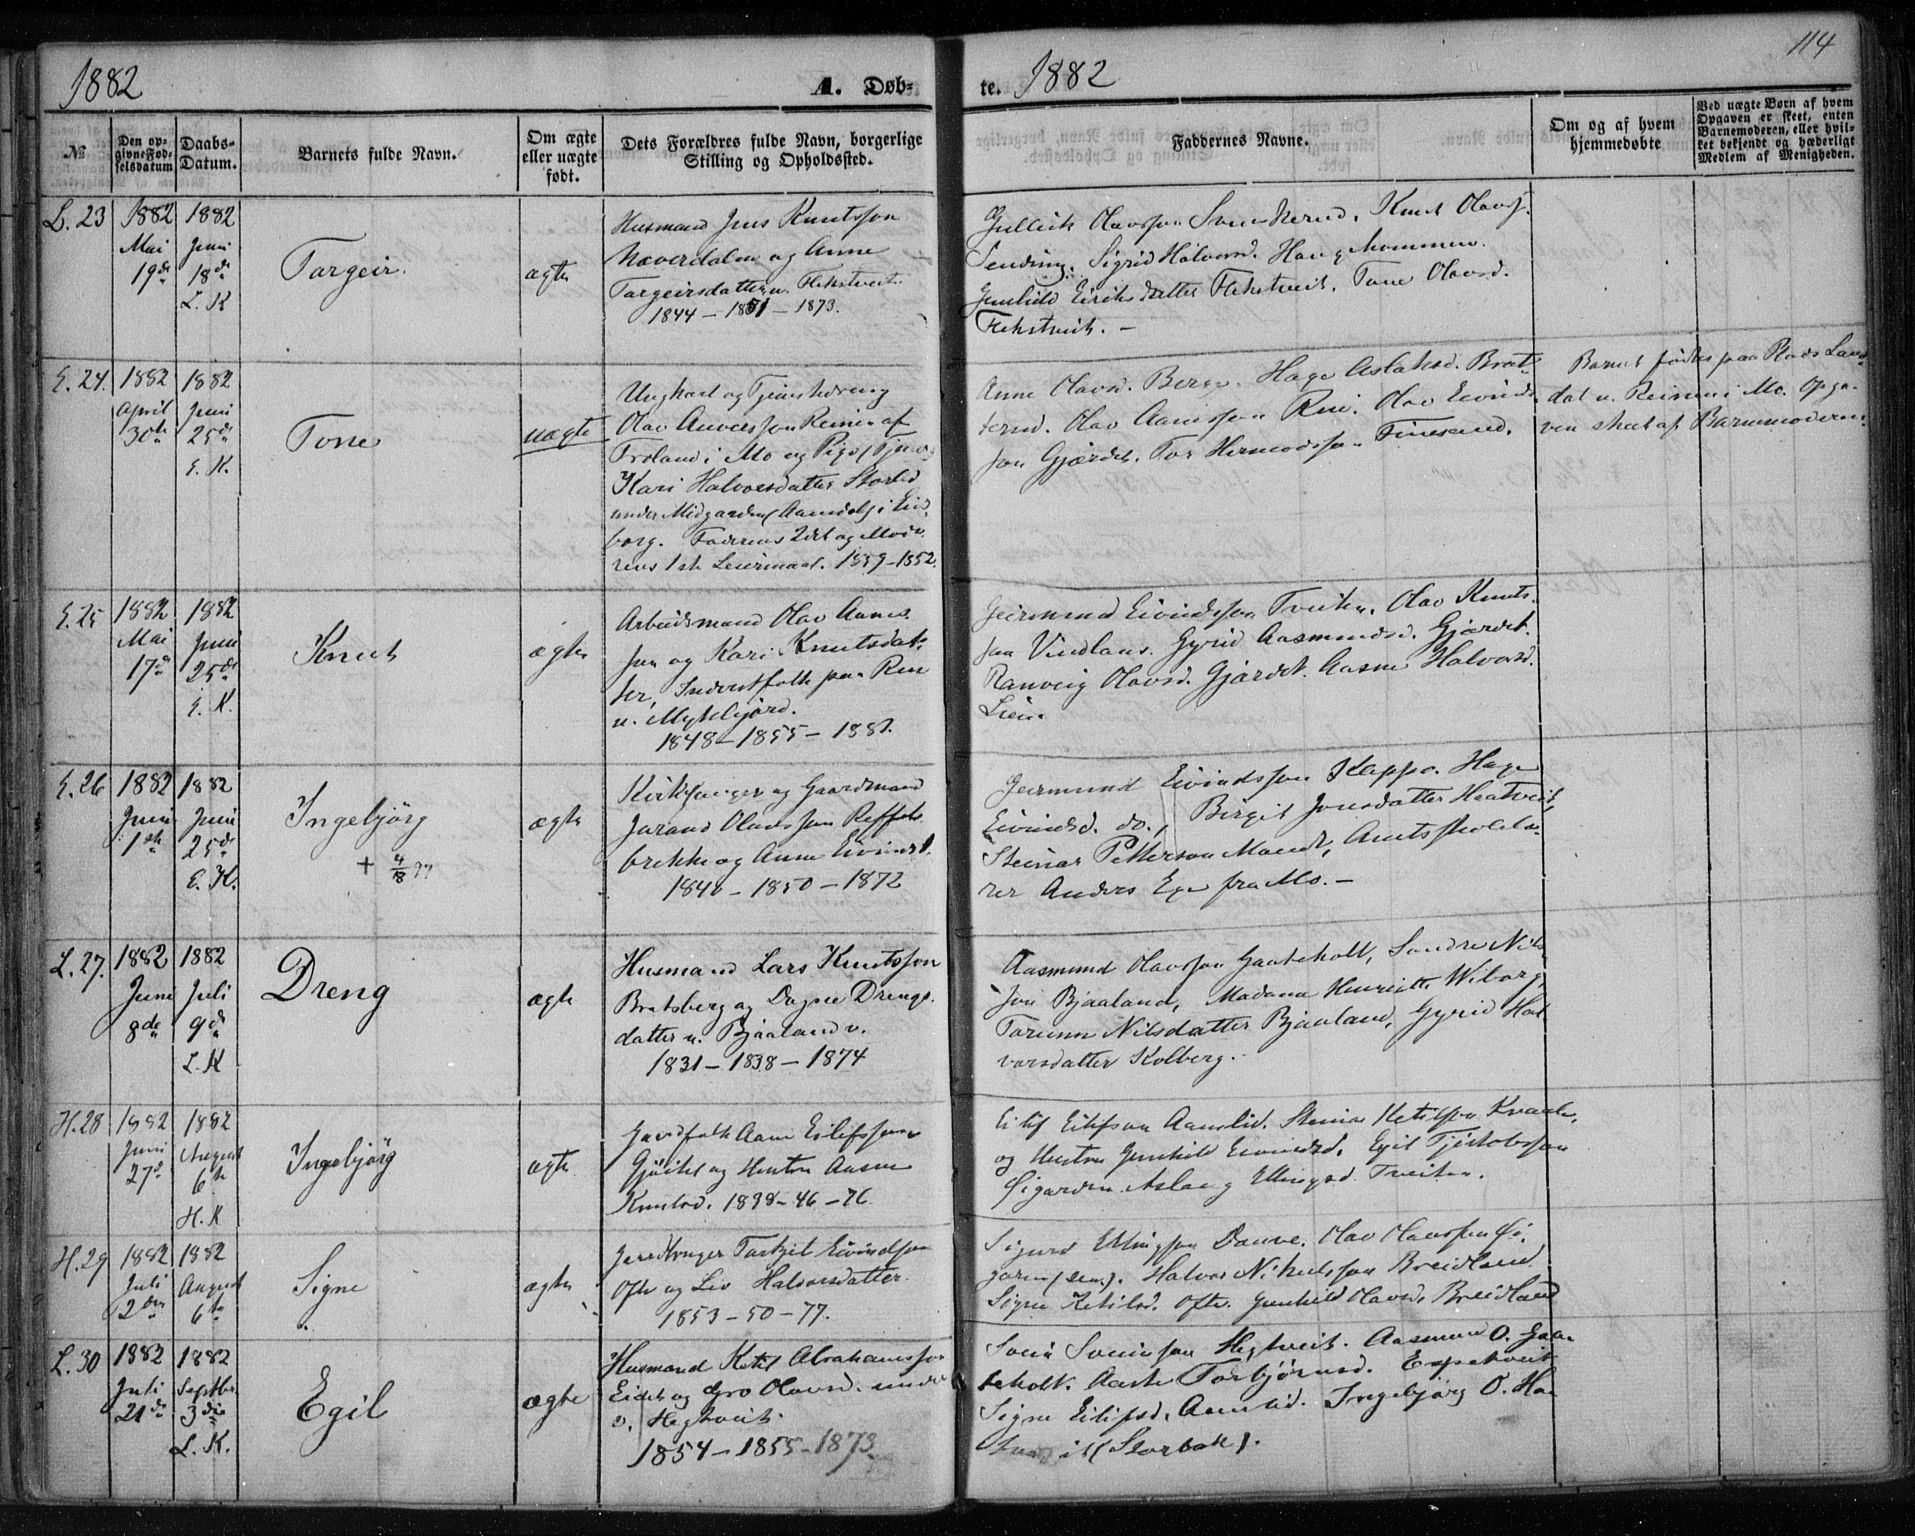 1882
A. Døb-
te. 1882
114
№
Den op-
givne Fød-
selsdatum
Daabs-
Datum.
Barnets fulde Navn.
Om ægte
eller uægte
født.
Dets Forældres fulde Navn, borgerlige
Stilling og Opholdssted.
Faddernes Navne.
Om og af hvem
hjemmedøbte
Ved uægte Børn af hvem
Opgaven er skeet, enten
Barnemoderen, eller hvil-
ket bekjendt og hæderligt
Medlem af Menigheden.
L. 23
1882
Mai
19de
1882
Juni
18de
L. K
Targeir.
ægte
Husmand Jens Knutsson
Naverdalen og Anne
Targeirsdatter u. Flekstveit.
1844 – 1851 – 1873.
Gullich Olavsson Svenkerud. Knut Olavs.
Sending. Sigrid Halvorsd. Haugmommen.
Gunhild Eiriksdatter Flekstveit. Tone Olavsd.
Flekstveit. –
E. 24.
1882
April
30te
1882
Juni
25de
E. K.
Tone
uægte
Ungkarl og Tjenestedreng
Olav Anversson Reinen af
Froland i Mo og Pige
Kari Halvorsdatter Storlid
under Midgarden (Aamdal) i Eids
borg. Faderens 2det og Mode
rens 1ste Leiermaal. 1859–1852.
Anne Olavsd. Berge. Hage Aslaksd. Brat
terud. Olav Aanisson Rui. Olav Eivinds
son Gjærdet. Tor Hermodsson Finesand.
Barnet fødtes paa Plads Lan
dal u. Reinen i Mo. Opga
ven skeet af Barnemoderen.
E. 25
1882
Mai
17de
1882
Juni
25de
E. K.
Knut
ægte
Arbeidsmand Olav Aanes
son og Kari Knutsdat
ter, Inderstfolk paa Rui
u. Myklejord.
1848 – 1855 – 1881.
Geirmund Eivindsson Tveiten. Olav Knuts
son Vindlaus. Gyrid Aasmundsd. Gjærdet.
Ranveig Olavsd. Gjærdet. Aasne Halvorsd.
Lien.
E. 26
1882
Juni
1ste
1882
Juni
25de
E. K.
Ingebjörg
+ 4/18 97
ægte
Kirkesanger og Gaardmand
Jarand Olavsson Reffels
brekke og Anne Eivindsd.
1840 – 1850 – 1872
Geirmund Eivindsson Kappo. Hage
Eivindsd. do., Birgit Jonsdatter Haatveit,
Steinar Petterson Mandt, Amtsskolelæ
rer Anders Ege fra Mo. –
L. 27.
1882
Juni
8de
1882
Juli
9de
L. K
Dreng
ægte
Husmand Lars Knutsson
Bratsberg og Dagne Drengs
datter u. Bjaaland v.
1831 – 1838 – 1874
Aasmund Olavsson Gaateholt, Sondre Nils
son Bjaaland, Madama Henriette Wiborg,
Torunn Nilsdatter Bjaaland, Gyrid Hal
vorsdatter Kolberg.
H. 28
1882
Juni
27de
1882
August
6te
H. K
Ingebjörg
ægte
Gardfolk Aane Eilifsson
Gjuvet og Hustru Aasne
Knutsd. 1838 – 46 – 76.
Eilif Eilifson Aamlid. Steinar Ketilson Kvaale,
og Hustru Gunhild Eivindsd. Egil Tjostolvsson
Øigarden. Aslaug Ellingsd. Tveiten.
H. 29
1882
Juli
2den
1882
August
6te
Signe
ægte
Tarkjil Eivindson
Ofte og Liv Halvorsdatter.
1853 – 50 – 77.
Sigurd Ellingson Dauve. Olav Olavsson Øi
garen (den). Halvor Nikulsson Breidland
Signe Ketilsd. Ofte. Gunhild Olavsd. Breidland
L. 30
1882
Juli
21de
1882
Septbr
3die
L. K.
Egil
ægte
Husmand Ketil Abrahamsson
Eidet og Gro Olavsd. under
v. Hegtveit.
1854 – 1855 – 1873.
Svein Sveinson Hegtveit. Aasmund O. Gaa
teholt. Aaste Torbjørnsd. Espetveit
Signe Eilifsd. Aamlid. Ingebjørg O. Ha
(Storbak).